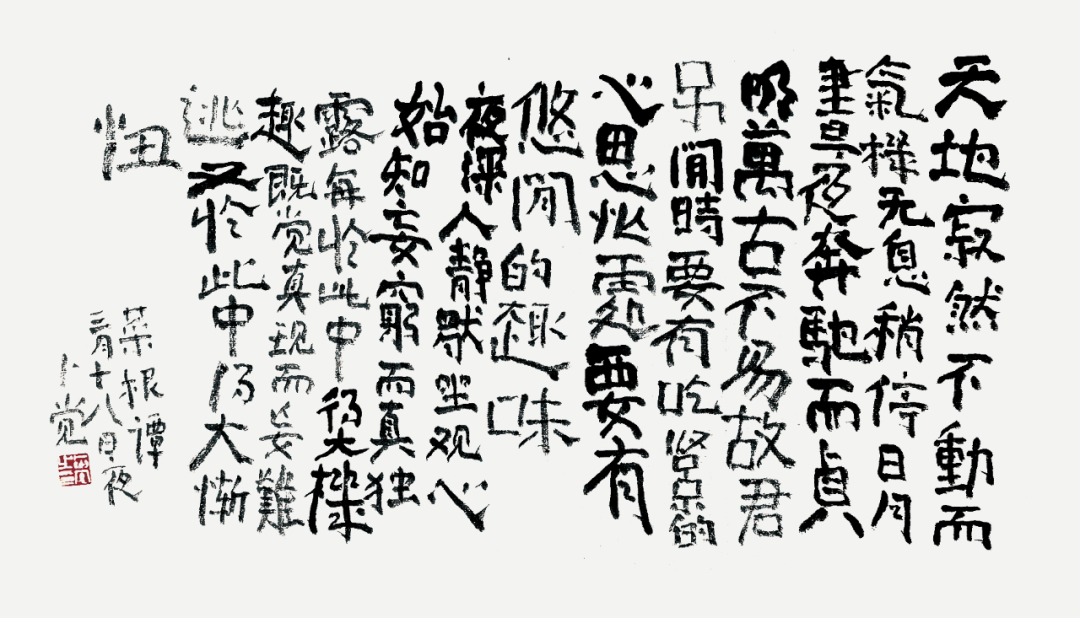 天地寂然不動而
氣機无息稍停日月
晝夜奔馳而貞
明萬古不易故君
子閒時要有吃紧的
心思忙處要有
悠閒的趣味
夜深人靜默坐观心
始知妄窮而真独
露每於此中得大機
趣既觉真现而妄難
逃又於此中得大慚
忸
菜根谭
月十八日夜
卜觉